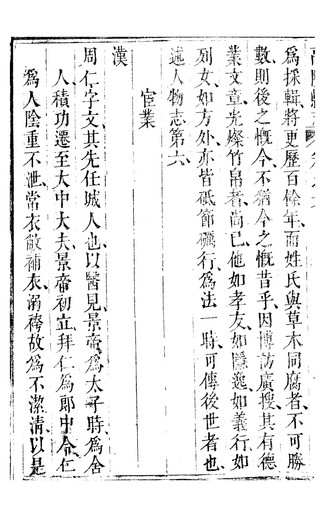 為採輯將更歷百餘年而姓氏與草木同腐者不可勝
數則後之慨今不猶今之慨昔乎因博訪廣搜其有德
業文章光燦竹帛者尚已他如孝友如隱逸如義行如
列女如方外亦皆砥節礪行為法一時可傳後世者也
述人物志第六
宦業
漢
周仁字文其先任城人也以醫見景帝為太子時為舍
人積功遷至太中大夫景帝初立拜仁為郎中令仁
為人陰重不泄當衣敝補衣溺袴故為不潔清以是